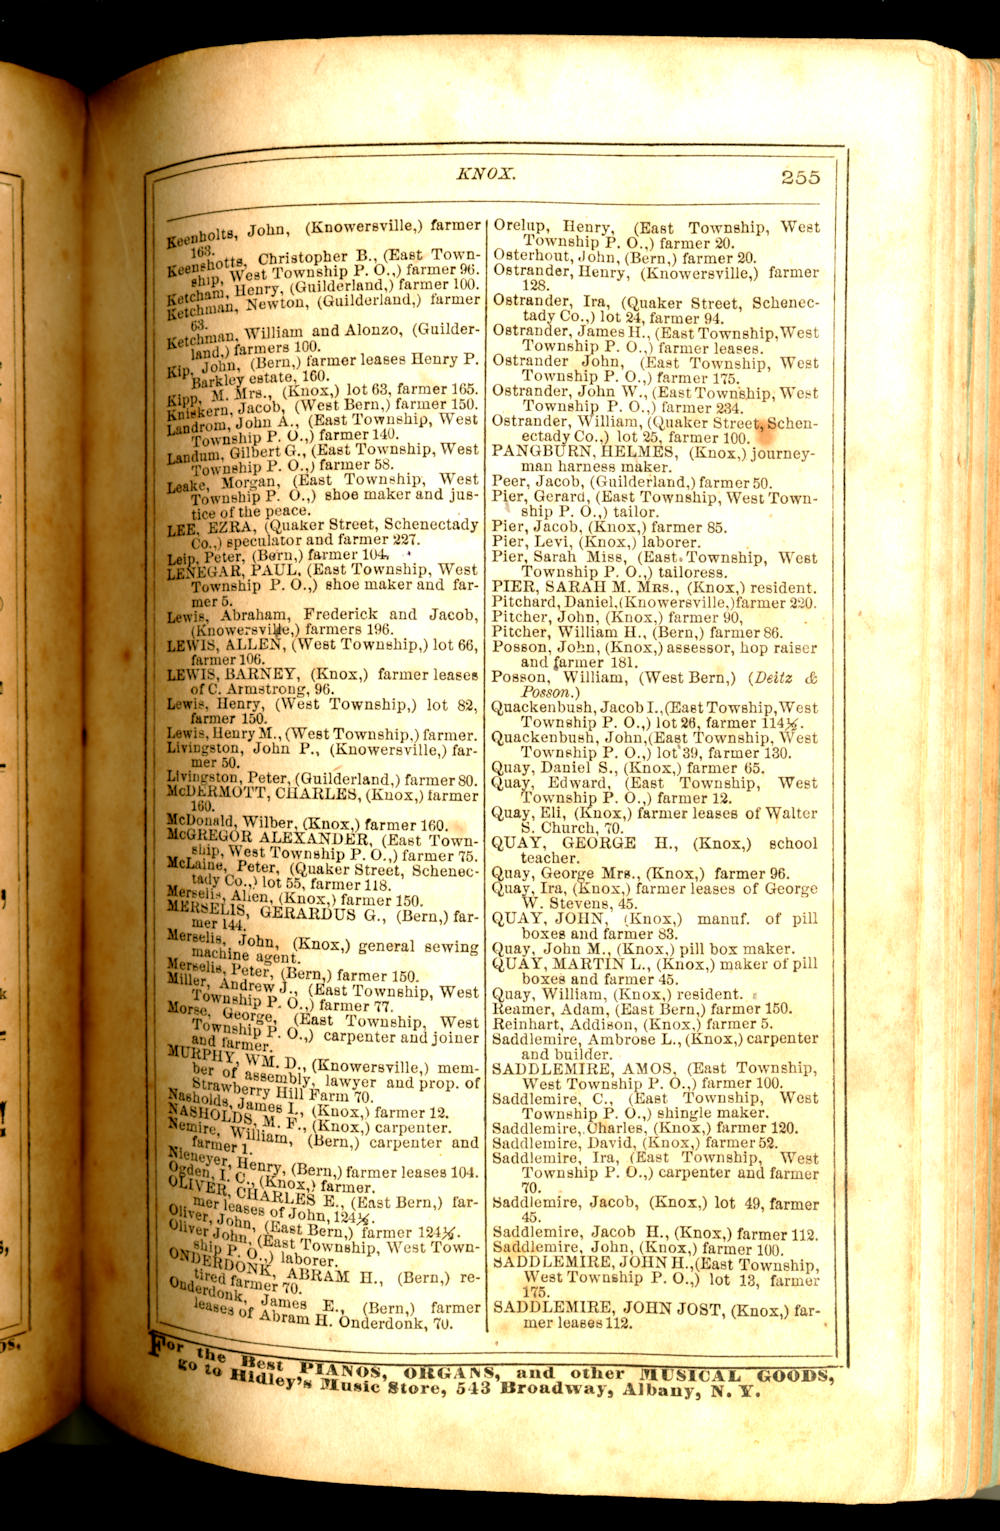 KNOX.
255
Keenholts, John, (Knowersville,) farmer
163.
Keenshotts, Christopher B., (East Town-
ship, West Township P. O.,) farmer 96.
Ketcham, Henry, (Guilderland,) farmer 100.
Ketchman, Newton, (Guilderland,) farmer
63.
Ketchman, William and Alonzo, (Guilder-
land,) farmers 100.
Kip, John, (Bern,) farmer leases Henry P.
Barkley estate, 160.
Kipp, M. Mrs., (Knox,) lot 63, farmer 165.
Kniskern, Jacob, (West Bern,) farmer 150.
Landrom, John A., (East Township, West
Township P. O.,) farmer 140.
Landum, Gilbert G., (East Township, West
Township P. O.,) farmer 58.
Leake, Morgan, (East Township, West
Township P. O.,) shoe maker and jus-
tice of the peace.
LEE, EZRA, (Quaker Street, Schenectady
Co.,) speculator and farmer 227.
Leip, Peter, (Bern,) farmer 104.
LENEGAR, PAUL, (East Township, West
Township P. O.,) shoe maker and far-
mer 5.
Lewis, Abraham, Frederick and Jacob,
(Knowersville,) farmers 196.
LEWIS, ALLEN, (West Township,) lot 66,
farmer 106.
LEWIS, BARNEY, (Knox,) farmer leases
of C. Armstrong, 96.
Lewis, Henry, (West Township,) lot 82,
farmer 150.
Lewis, Henry M., (West Township,) farmer.
Livingston, John P., (Knowersville,) far-
mer 50.
Livingston, Peter, (Guilderland,) farmer 80.
McDERMOTT, CHARLES, (Knox,) farmer
160.
McDonald, Wilber, (Knox,) farmer 160.
McGREGOR ALEXANDER, (East Town-
ship, West Township P. O.,) farmer 75.
McLaine, Peter, (Quaker Street, Schenec-
tady Co.,) lot 55, farmer 118.
Merselis, Allen, (Knox,) farmer 150.
MERSELIS, GERARDUS G., (Bern,) far-
mer 144.
Merselis, John, (Knox,) general sewing
machine agent.
Merselis, Peter, (Bern,) farmer 150.
Miller, Andrew J., (East Township, West
Township P. O.,) farmer 77.
Morse, George, (East Township, West
Township P. O.,) carpenter and joiner
and farmer.
MURPHY, WM. D., (Knowersville,) mem-
ber of assembly, lawyer and prop. of
Strawberry Hill Farm 70.
Nasholds, James I., (Knox,) farmer 12.
NASHOLDS, M. F., (Knox,) carpenter.
Nemire, William, (Bern,) carpenter and
farmer 1.
Nieneyer, Henry, (Bern,) farmer leases 104.
Ogden, I. C., (Knox,) farmer.
OLIVER, CHARLES E., (East Bern,) far-
mer leases of John, 124½.
Oliver, John, (East Bern,) farmer 124½.
Oliver John, (East Township, West Town-
ship P. O.,) laborer.
ONDERDONK, ABRAM H., (Bern,) re-
tired farmer 70.
Onderdonk, James E., (Bern,) farmer
leases of Abram H. Onderdonk, 70.
Orelup, Henry, (East Township, West
Township P. O.,) farmer 20.
Osterhout, John, (Bern,) farmer 20.
Ostrander, Henry, (Knowersville,) farmer
128.
Ostrander, Ira, (Quaker Street, Schenec-
tady Co.,) lot 24, farmer 94.
Ostrander, James H., (East Township, West
Township P. O.,) farmer leases.
Ostrander John, (East Township, West
Township P. O.,) farmer 175.
Ostrander, John W., (East Township, West
Township P. O.,) farmer 234.
Ostrander, William, (Quaker Street, Schen-
ectady Co.,) lot 25, farmer 100.
PANGBURN, HELMES, (Knox,) journey-
man harness maker.
Peer, Jacob, (Guilderland,) farmer 50.
Pier, Gerard, (East Township, West Town-
ship P. O.,) tailor.
Pier, Jacob, (Knox,) farmer 85.
Pier, Levi, (Knox,) laborer.
Pier, Sarah Miss, (East Township, West
Township P. O.,) tailoress.
PIER, SARAH M. MRS., (Knox,) resident.
Pitchard, Daniel, (Knowersville,) farmer 220.
Pitcher, John, (Knox,) farmer 90,
Pitcher, William H., (Bern,) farmer 86.
Posson, John, (Knox,) assessor, hop raiser
and farmer 181.
Posson, William, (West Bern,) (Deitz &
Posson.)
Quackenbush, Jacob I., (East Towship, West
Township P. O.,) lot 26, farmer 114½.
Quackenbush, John, (East Township, West
Township P. O.,) lot 39, farmer 130.
Quay, Daniel S., (Knox,) farmer 65.
Quay, Edward, (East Township, West
Township P. O.,) farmer 12.
Quay, Eli, (Knox,) farmer leases of Walter
S. Church, 70.
QUAY, GEORGE H., (Knox,) school
teacher.
Quay, George Mrs., (Knox,) farmer 96.
Quay, Ira, (Knox,) farmer leases of George
W. Stevens, 45.
QUAY, JOHN, (Knox,) manuf. of pill
boxes and farmer 83.
Quay, John M., (Knox,) pill box maker.
QUAY, MARTIN L., (Knox,) maker of pill
boxes and farmer 45.
Quay, William, (Knox,) resident.
Reamer, Adam, (East Bern,) farmer 150.
Reinhart, Addison, (Knox,) farmer 5.
Saddlemire, Ambrose L., (Knox,) carpenter
and builder.
SADDLEMIRE, AMOS, (East Township,
West Township P. O.,) farmer 100.
Saddlemire, C., (East Township, West
Township P. O.,) shingle maker.
Saddlemire, Charles, (Knox,) farmer 120.
Saddlemire, David, (Knox,) farmer 52.
Saddlemire, Ira, (East Township, West
Township P. O.,) carpenter and farmer
70.
Saddlemire, Jacob, (Knox,) lot 49, farmer
45.
Saddlemire, Jacob H., (Knox,) farmer 112.
Saddlemire, John, (Knox,) farmer 100.
SADDLEMIRE, JOHN H., (East Township,
West Township P. O.,) lot 13, farmer
175.
SADDLEMIRE, JOHN JOST, (Knox,) far-
mer leases 112.
For the Best PIANOS, ORGANS, and other MUSICAL GOODS,
go to Hidley's Music Store, 543 Broadway, Albany, N. Y.